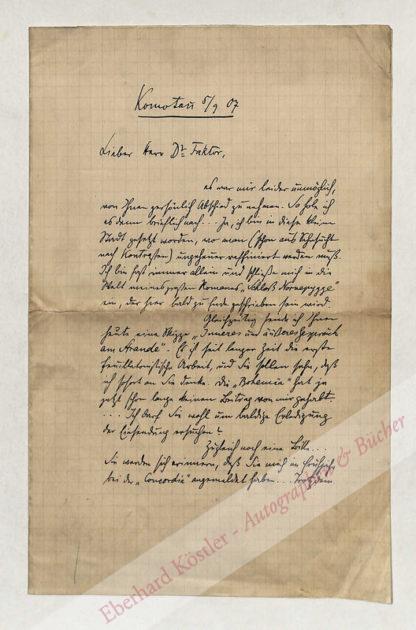 Komotau 5/9 07
Lieber Herr Dr. Faktor,
es war mir leider unmöglich,
von Ihnen persönlich Abschied zu nehmen. So hole ich
es denn brieflich nach... Ja, ich bin in diese kleine
Stadt gesetzt worden, wo man (schon aus Sehnsucht
nach Kontrasten) ungeheuer raffiniert werden muß.
Ich bin fast immer allein und schließe mich in die
Welt meines großen Romanes, "Schloß Nornepygge"
ein, der hier bald zu Ende geschrieben sein wird.
Gleichzeitig sende ich Ihnen
heute eine Skizze "Inneres und äußeres Gespräch
am Strande". Es ist seit langer Zeit die erste
feuilletonistische Arbeit, und Sie sollen sehn, daß
ich sofort an Sie denke. Die "Bohemia" hat ja
jetzt schon lange keinen Beitrag von mir gehabt.
.... Ich darf Sie wohl um baldige Erledigung
der Einsendung ersuchen?
Zugleich noch eine Bitte...
Sie werden sich erinnern, daß Sie mich im Frühjahr
bei der "Concordia" angemeldet haben... Trotzdem
Eberhard Köstler - Autographen & Bücher